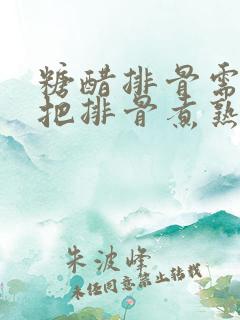 糖醋排骨需
把排骨煮熟
朱波峰
未经同意禁止转载